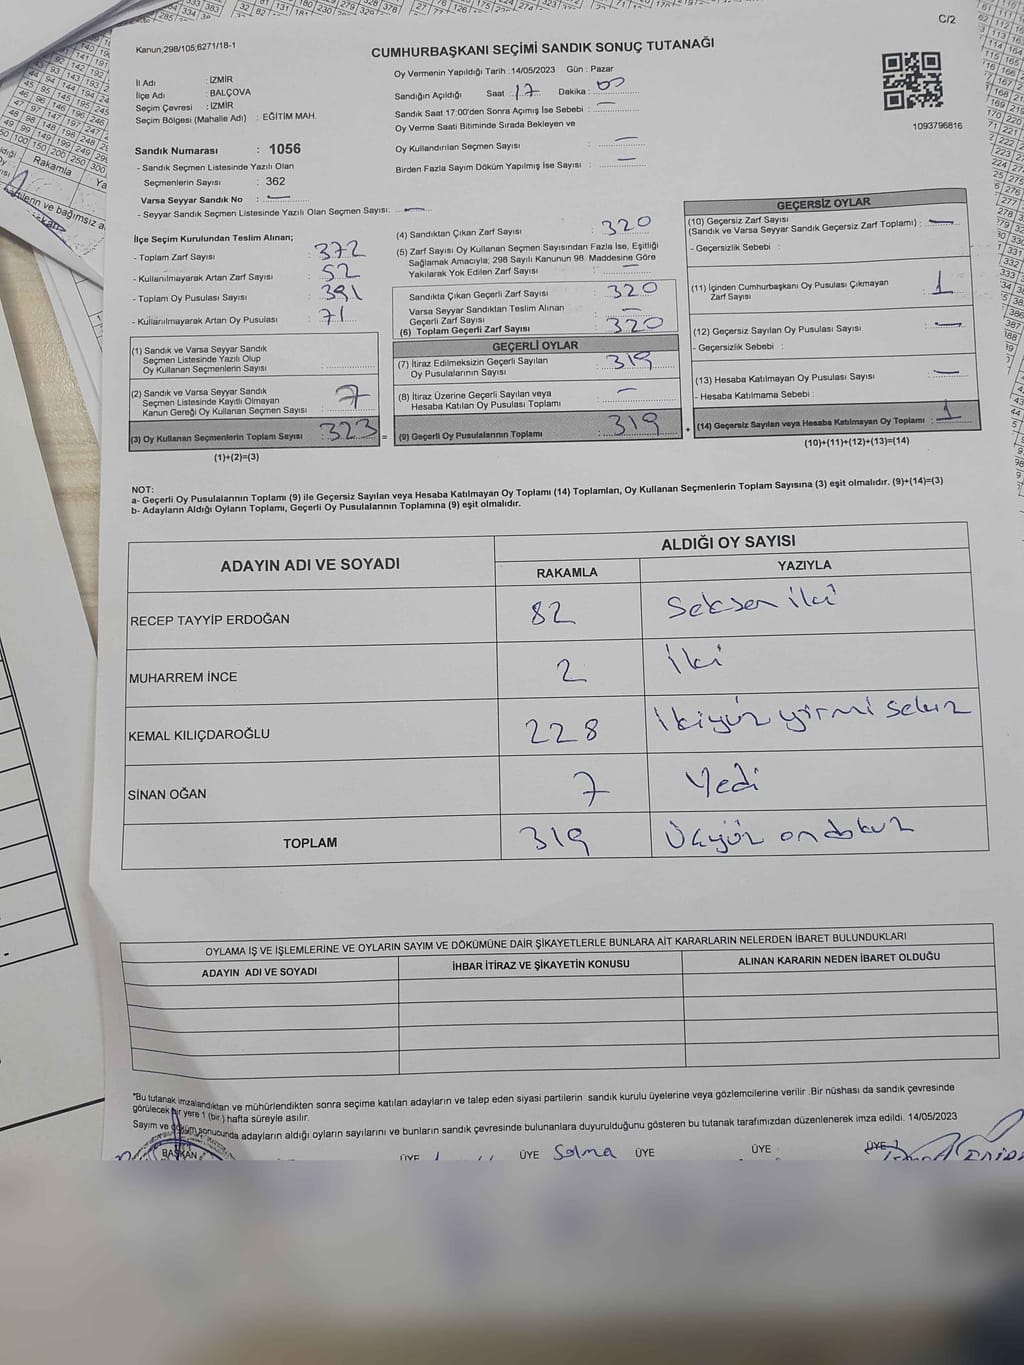 C/2
Kanun;298/105;6271/18-1
CUMHURBAŞKANI SEÇİMİ SANDIK SONUÇ TUTANAĞI
İl Adı : İZMİR
İlçe Adı : BALÇOVA
Seçim Çevresi : İZMİR
Seçim Bölgesi (Mahalle Adı) : EĞİTİM MAH.
Sandık Numarası : 1056
- Sandık Seçmen Listesinde Yazılı Olan
Seçmenlerin Sayısı : 362
Varsa Seyyar Sandık No : —
- Seyyar Sandık Seçmen Listesinde Yazılı Olan Seçmen Sayısı: —
Oy Vermenin Yapıldığı Tarih :14/05/2023 Gün : Pazar
Sandığın Açıldığı Saat : 17 Dakika : 00
Sandık Saat 17:00'den Sonra Açımış İse Sebebi : —
Oy Verme Saati Bitiminde Sırada Bekleyen ve
Oy Kullandırılan Seçmen Sayısı : —
Birden Fazla Sayım Döküm Yapılmış İse Sayısı : —
1093796816
İlçe Seçim Kurulundan Teslim Alınan;
- Toplam Zarf Sayısı : 372
- Kullanılmayarak Artan Zarf Sayısı : 52
- Toplam Oy Pusulası Sayısı : 391
- Kullanılmayarak Artan Oy Pusulası : 71
(1) Sandık ve Varsa Seyyar Sandık
Seçmen Listesinde Yazılı Olup
Oy Kullanan Seçmenlerin Sayısı :
(2) Sandık ve Varsa Seyyar Sandık
Seçmen Listesinde Kayıtlı Olmayan
Kanun Gereği Oy Kullanan Seçmen Sayısı : 7
(3) Oy Kullanan Seçmenlerin Toplam Sayısı : 323 =
(1)+(2)=(3)
(4) Sandıktan Çıkan Zarf Sayısı : 320
(5) Zarf Sayısı Oy Kullanan Seçmen Sayısından Fazla İse, Eşitliği
Sağlamak Amacıyla; 298 Sayılı Kanunun 98. Maddesine Göre
Yakılarak Yok Edilen Zarf Sayısı : —
Sandıkta Çıkan Geçerli Zarf Sayısı : 320
Varsa Seyyar Sandıktan Teslim Alınan
Geçerli Zarf Sayısı : —
(6) Toplam Geçerli Zarf Sayısı : 320
GEÇERLİ OYLAR
(7) İtiraz Edilmeksizin Geçerli Sayılan
Oy Pusulalarının Sayısı : 319
(8) İtiraz Üzerine Geçerli Sayılan veya
Hesaba Katılan Oy Pusulası Toplamı : —
(9) Geçerli Oy Pusulalarının Toplamı : 319 +
GEÇERSİZ OYLAR
(10) Geçersiz Zarf Sayısı
(Sandık ve Varsa Seyyar Sandık Geçersiz Zarf Toplamı) : —
- Geçersizlik Sebebi :
(11) İçinden Cumhurbaşkanı Oy Pusulası Çıkmayan
Zarf Sayısı : 1
(12) Geçersiz Sayılan Oy Pusulası Sayısı : —
- Geçersizlik Sebebi :
(13) Hesaba Katılmayan Oy Pusulası Sayısı : —
- Hesaba Katılmama Sebebi :
(14) Geçersiz Sayılan veya Hesaba Katılmayan Oy Toplamı : 1
(10)+(11)+(12)+(13)=(14)
NOT:
a- Geçerli Oy Pusulalarının Toplamı (9) ile Geçersiz Sayılan veya Hesaba Katılmayan Oy Toplamı (14) Toplamları, Oy Kullanan Seçmenlerin Toplam Sayısına (3) eşit olmalıdır. (9)+(14)=(3)
b- Adayların Aldığı Oyların Toplamı, Geçerli Oy Pusulalarının Toplamına (9) eşit olmalıdır.
ADAYIN ADI VE SOYADI ALDIĞI OY SAYISI
RAKAMLA YAZIYLA
RECEP TAYYİP ERDOĞAN 82 Seksen iki
MUHARREM İNCE 2 İki
KEMAL KILIÇDAROĞLU 228 İkiyüz yirmi sekiz
SİNAN OĞAN 7 Yedi
TOPLAM 319 Üçyüz ondokuz
OYLAMA İŞ VE İŞLEMLERİNE VE OYLARIN SAYIM VE DÖKÜMÜNE DAİR ŞİKAYETLERLE BUNLARA AİT KARARLARIN NELERDEN İBARET BULUNDUKLARI
ADAYIN ADI VE SOYADI İHBAR İTİRAZ VE ŞİKAYETİN KONUSU ALINAN KARARIN NEDEN İBARET OLDUĞU
*Bu tutanak imzalandıktan ve mühürlendikten sonra seçime katılan adayların ve talep eden siyasi partilerin sandık kurulu üyelerine veya gözlemcilerine verilir .Bir nüshası da sandık çevresinde
görülecek bir yere 1 (bir ) hafta süreyle asılır.
Sayım ve döküm sonucunda adayların aldığı oyların sayılarını ve bunların sandık çevresinde bulunanlara duyurulduğunu gösteren bu tutanak tarafımızdan düzenlenerek imza edildi. 14/05/2023
BAŞKAN ÜYE ÜYE Selma ÜYE ÜYE ÜYE